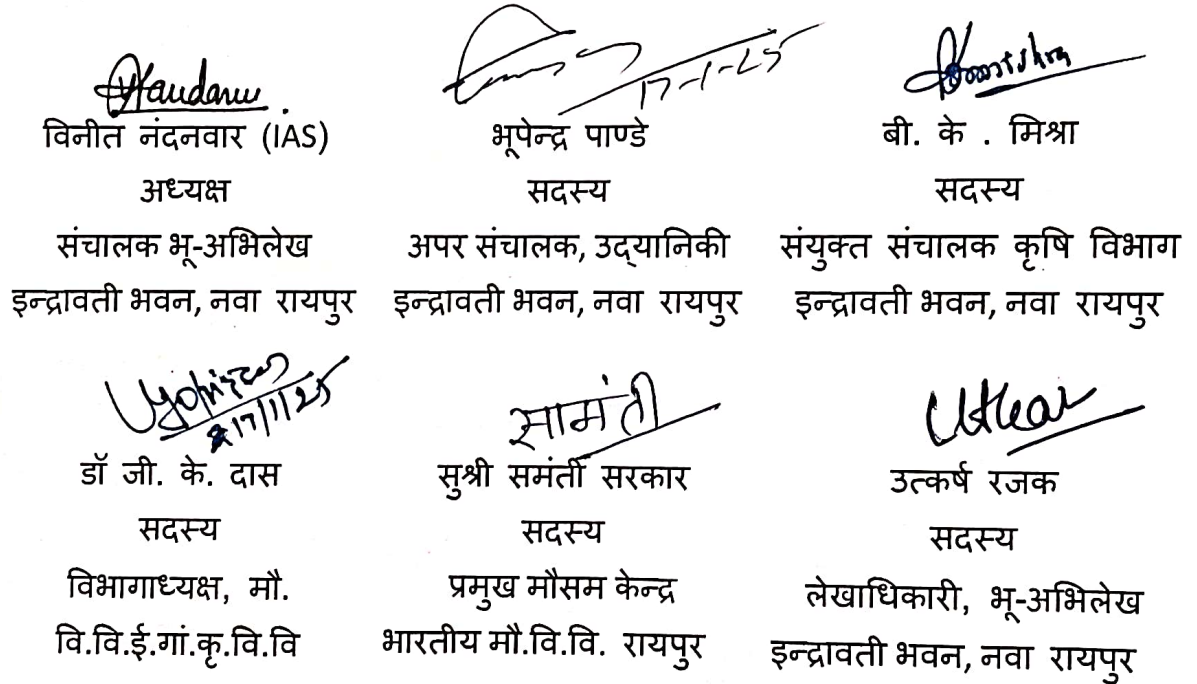 17-1-25
विनीत नंदनवार (IAS)
अध्यक्ष
संचालक भू-अभिलेख
इन्द्रावती भवन, नवा रायपुर
भूपेन्द्र पाण्डे
सदस्य
अपर संचालक, उद्यानिकी
इन्द्रावती भवन, नवा रायपुर
बी. के . मिश्रा
सदस्य
संयुक्त संचालक कृषि विभाग
इन्द्रावती भवन, नवा रायपुर
17/1/25
डॉ जी. के. दास
सदस्य
विभागाध्यक्ष, मौ.
वि.वि.ई.गां.कृ.वि.वि
सामंती
सुश्री समंती सरकार
सदस्य
प्रमुख मौसम केन्द्र
भारतीय मौ.वि.वि. रायपुर
उत्कर्ष रजक
सदस्य
लेखाधिकारी, भू-अभिलेख
इन्द्रावती भवन, नवा रायपुर